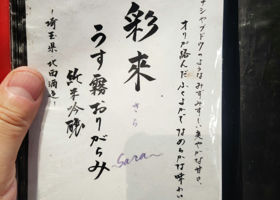 ナシやブドウのようなみずみずしい爽やかな甘口。
オリが絡んだ、ふくよかでなめらかな味わい
彩来
さら
うす霧おりがらみ
~Sara~
純米吟醸
～埼玉県 北西酒造～